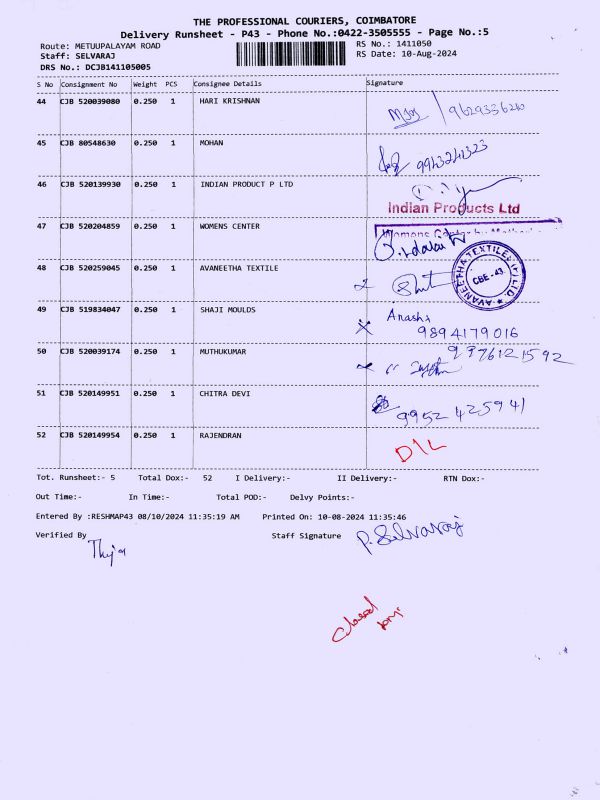 THE PROFESSIONAL COURIERS, COIMBATORE
Delivery Runsheet - P43 - Phone No.:0422-3505555 - Page No.:5
Route: METUUPALAYAM ROAD
RS No.: 1411050
Staff: SELVARAJ
RS Date: 10-Aug-2024
DRS No.: DCJB141105005
S No Consignment No Weight PCS Consignee Details Signature
44 CJB 520039080 0.250 1 HARI KRISHNAN
45 CJB 80548630 0.250 1 MOHAN 9943241323
46 CJB 520139930 0.250 1 INDIAN PRODUCT P LTD
Indian Products Ltd
47 CJB 520204859 0.250 1 WOMENS CENTER
Womens Center by
48 CJB 520259045 0.250 1 AVANEETHA TEXTILE
AVANEETHA TEXTILES (P) LTD. CBE-43
49 CJB 519834047 0.250 1 SHAJI MOULDS
9894179016
50 CJB 520039174 0.250 1 MUTHUKUMAR
51 CJB 520149951 0.250 1 CHITRA DEVI
9952425941
52 CJB 520149954 0.250 1 RAJENDRAN D/L
Tot. Runsheet:- 5 Total Dox:- 52 I Delivery:- II Delivery:- RTN Dox:-
Out Time:- In Time:- Total POD:- Delvy Points:-
Entered By :RESHMAP43 08/10/2024 11:35:19 AM Printed On: 10-08-2024 11:35:46
Verified By Staff Signature P. Selvaraj
Closed